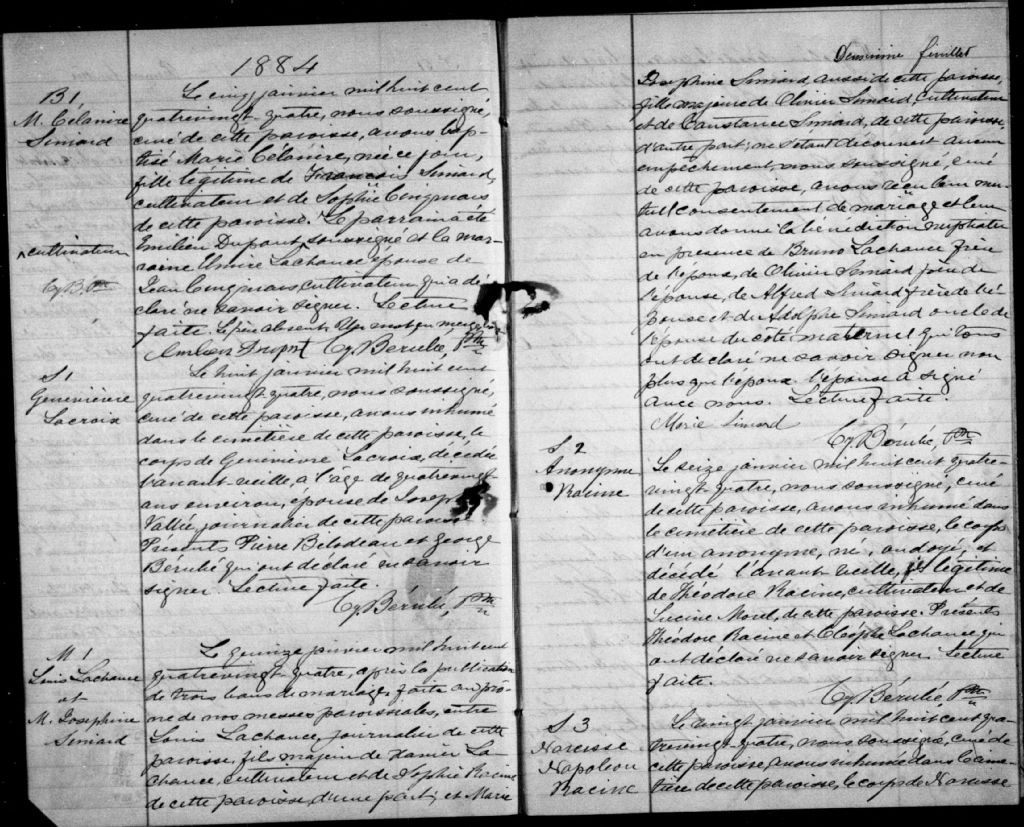 1884
B 1
M. Célanire
Simard
Le cinq janvier mil huit cent
quatrevingt-quatre, nous soussigné,
curé de cette paroisse, avons bap-
tisé Marie Célanire, née ce jour,
fille légitime de François Simard,
cultivateur et de Sophie Cinqmars
de cette paroisse. Le parrain a été
Emilien Dupont, soussigné et la mar-
raine Usmire Lachance épouse de
Jean Cinqmars, cultivateur, qui a dé-
claré ne savoir signer. Lecture
faite. Le père absent. Un mot en marge
cultivateur
Cy. B. Ptre
Emilien Dupont Cy. Bérubé, Ptre
S 1
Geneviève
Lacroix
Le huit janvier mil huit cent
quatrevingt-quatre, nous soussigné,
curé de cette paroisse, avons inhumé
dans le cimetière de cette paroisse, le
corps de Geneviève Lacroix, décédée
l'avant-veille, à l'âge de quatrevingt
ans environ, épouse de Joseph
Vallée, journalier de cette paroisse
Présents Pierre Bilodeau et George
Berubé qui ont déclaré ne savoir
signer. Lecture faite.
Cy. Bérubé, Ptre
M. 1
Louis Lachance
et
M. Josephine
Simard
Le quinze janvier mil huit cent
quatrevingt-quatre, après la publication
de trois bans de mariage faite au prô-
ne de nos messes paroissiales, entre
Louis Lachance, journalier de cette
paroisse, fils majeur de Xavier La-
chance, cultivateur et de Sophie Racine
de cette paroisse, d'une part; et Marie
Deuxième feuillet
Josephine Simard, aussi de cette paroisse,
fille majeure de Olivier Simard, cultivateur
et de Constance Simard, de cette paroisse,
d'autre part; ne s'étant découvert aucun
empêchement, nous soussigné, curé
de cette paroisse, avons reçu leur mu-
tuel consentement de mariage et leur
avons donné la bénédiction nuptiale
en présence de Bruno Lachance frère
de l'époux, de Olivier Simard père de
l'épouse, de Alfred Simard frère de l'é-
pouse et de Adolphe Simard oncle de
l'épouse du côté maternel qui tous
ont déclaré ne savoir signer non
plus que l'époux. L'épouse a signé
avec nous. Lecture faite.
Marie Simard
Cy. Bérubé, Ptre
S 2
Anonyme
Racine
Le seize janvier mil huit cent quatre-
vingt-quatre, nous soussigné, curé
de cette paroisse, avons inhumé dans
le cimetière de cette paroisse, le corps
d'un anonyme, né, ondoyé, et
décédé l'avant-veille, légitime
de Théodore Racine, cultivateur et de
Lucine Morel, de cette paroisse. Présents
Théodore Racine et Cléophe Lachance qui
ont déclaré ne savoir signer. Lecture
faite.
Cy. Bérubé, Ptre
S 3
Narcisse
Napoleon
Racine
Le vingt janvier mil huit cent qua-
trevingt-quatre, nous soussigné, curé de
cette paroisse, avons inhumé dans le cime-
tière de cette paroisse, le corps de Narcisse